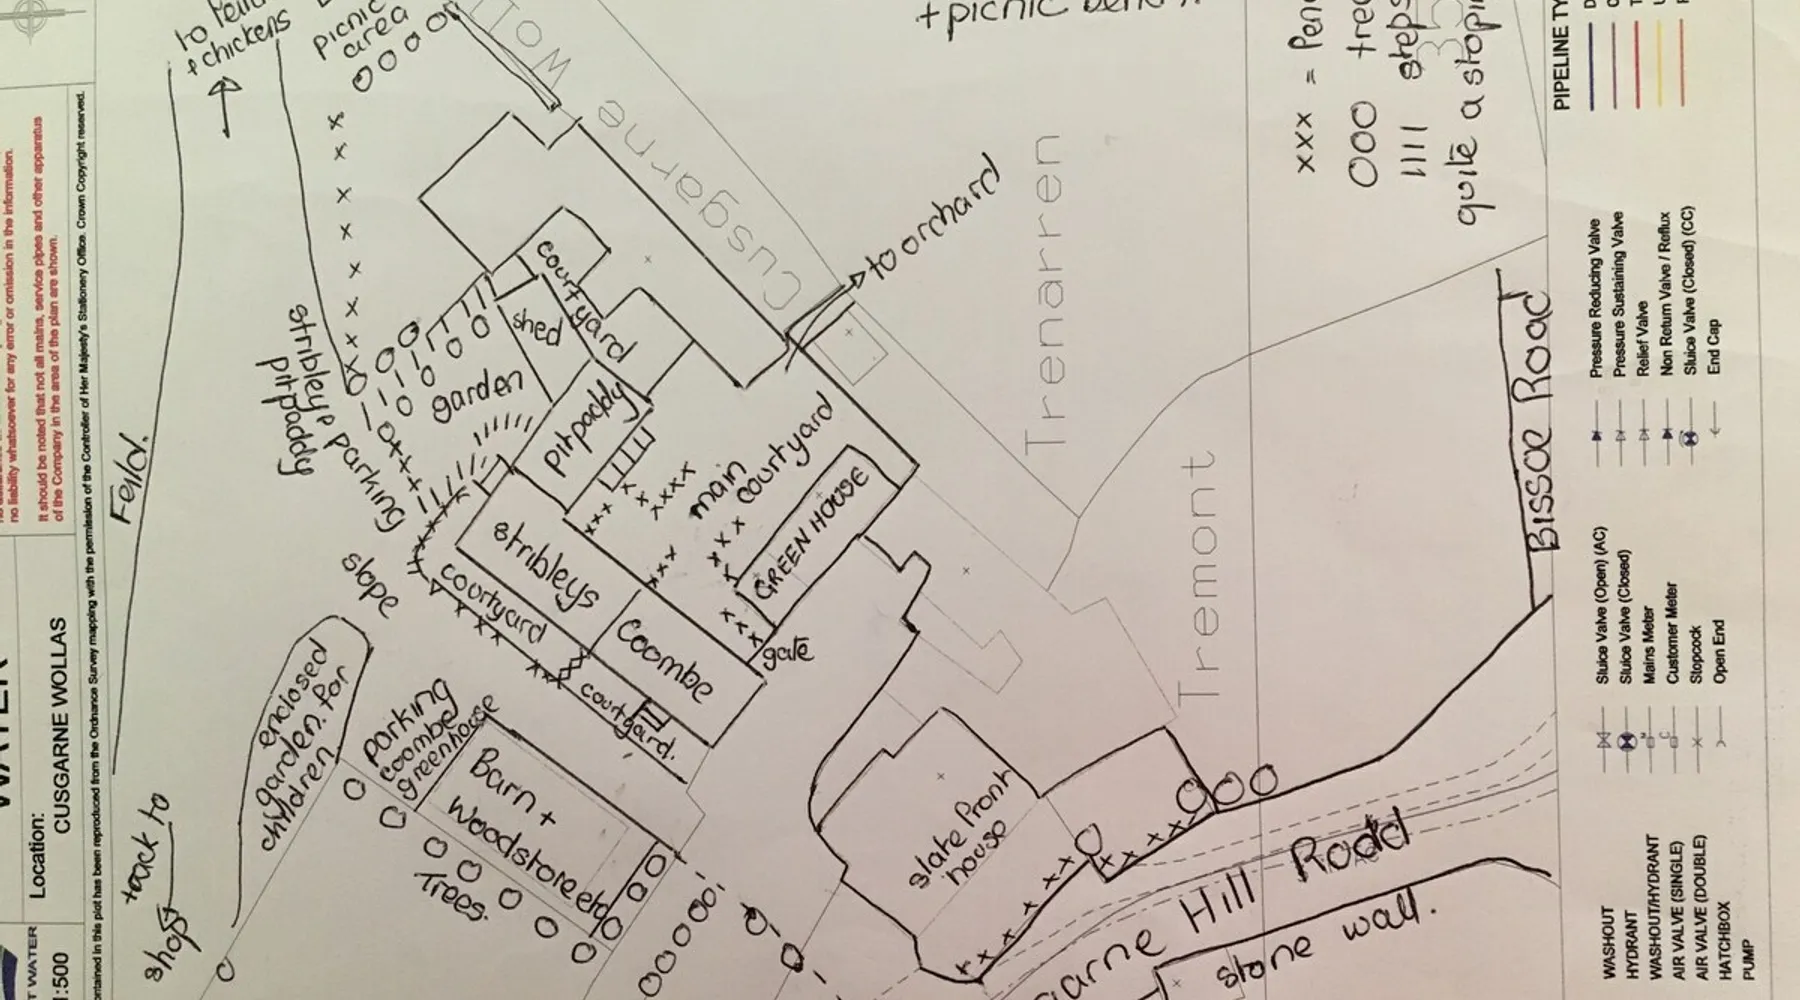 & chickens
picnic
area
+ picnic
xxx =
000
1111 steps
quite a
PIPELINE
Wollas
Cusgarne
Trenarren
Tremont
to orchard
courtyard
shed
garden
pitpaddy
stribleys
pitpaddy
parking
main
courtyard
GREEN HOUSE
stribleys
courtyard
coombe
courtyard.
gate
slope
Feild.
enclosed
garden for
children
parking
coombe
greenhouse
Barn +
Woodstore etc
Trees.
track to
shop
slate front
house
Hill Road
stone wall.
Bissoe Road
no liability whatsoever for any error or omission in the information.
It should be noted that not all mains, service pipes and other apparatus
of the Company in the area of the plan are shown.
contained in this plot has been reproduced from the Ordnance Survey mapping with the permission of the Controller of Her Majesty's Stationery Office. Crown Copyright reserved.
Location:
CUSGARNE WOLLAS
WATER
1:500
Pressure Reducing Valve
Pressure Sustaining Valve
Relief Valve
Non Return Valve / Reflux
Sluice Valve (Closed) (CC)
End Cap
Sluice Valve (Open) (AC)
Sluice Valve (Closed)
Mains Meter
Customer Meter
Stopcock
Open End
WASHOUT
HYDRANT
WASHOUT/HYDRANT
AIR VALVE (SINGLE)
AIR VALVE (DOUBLE)
HATCHBOX
PUMP